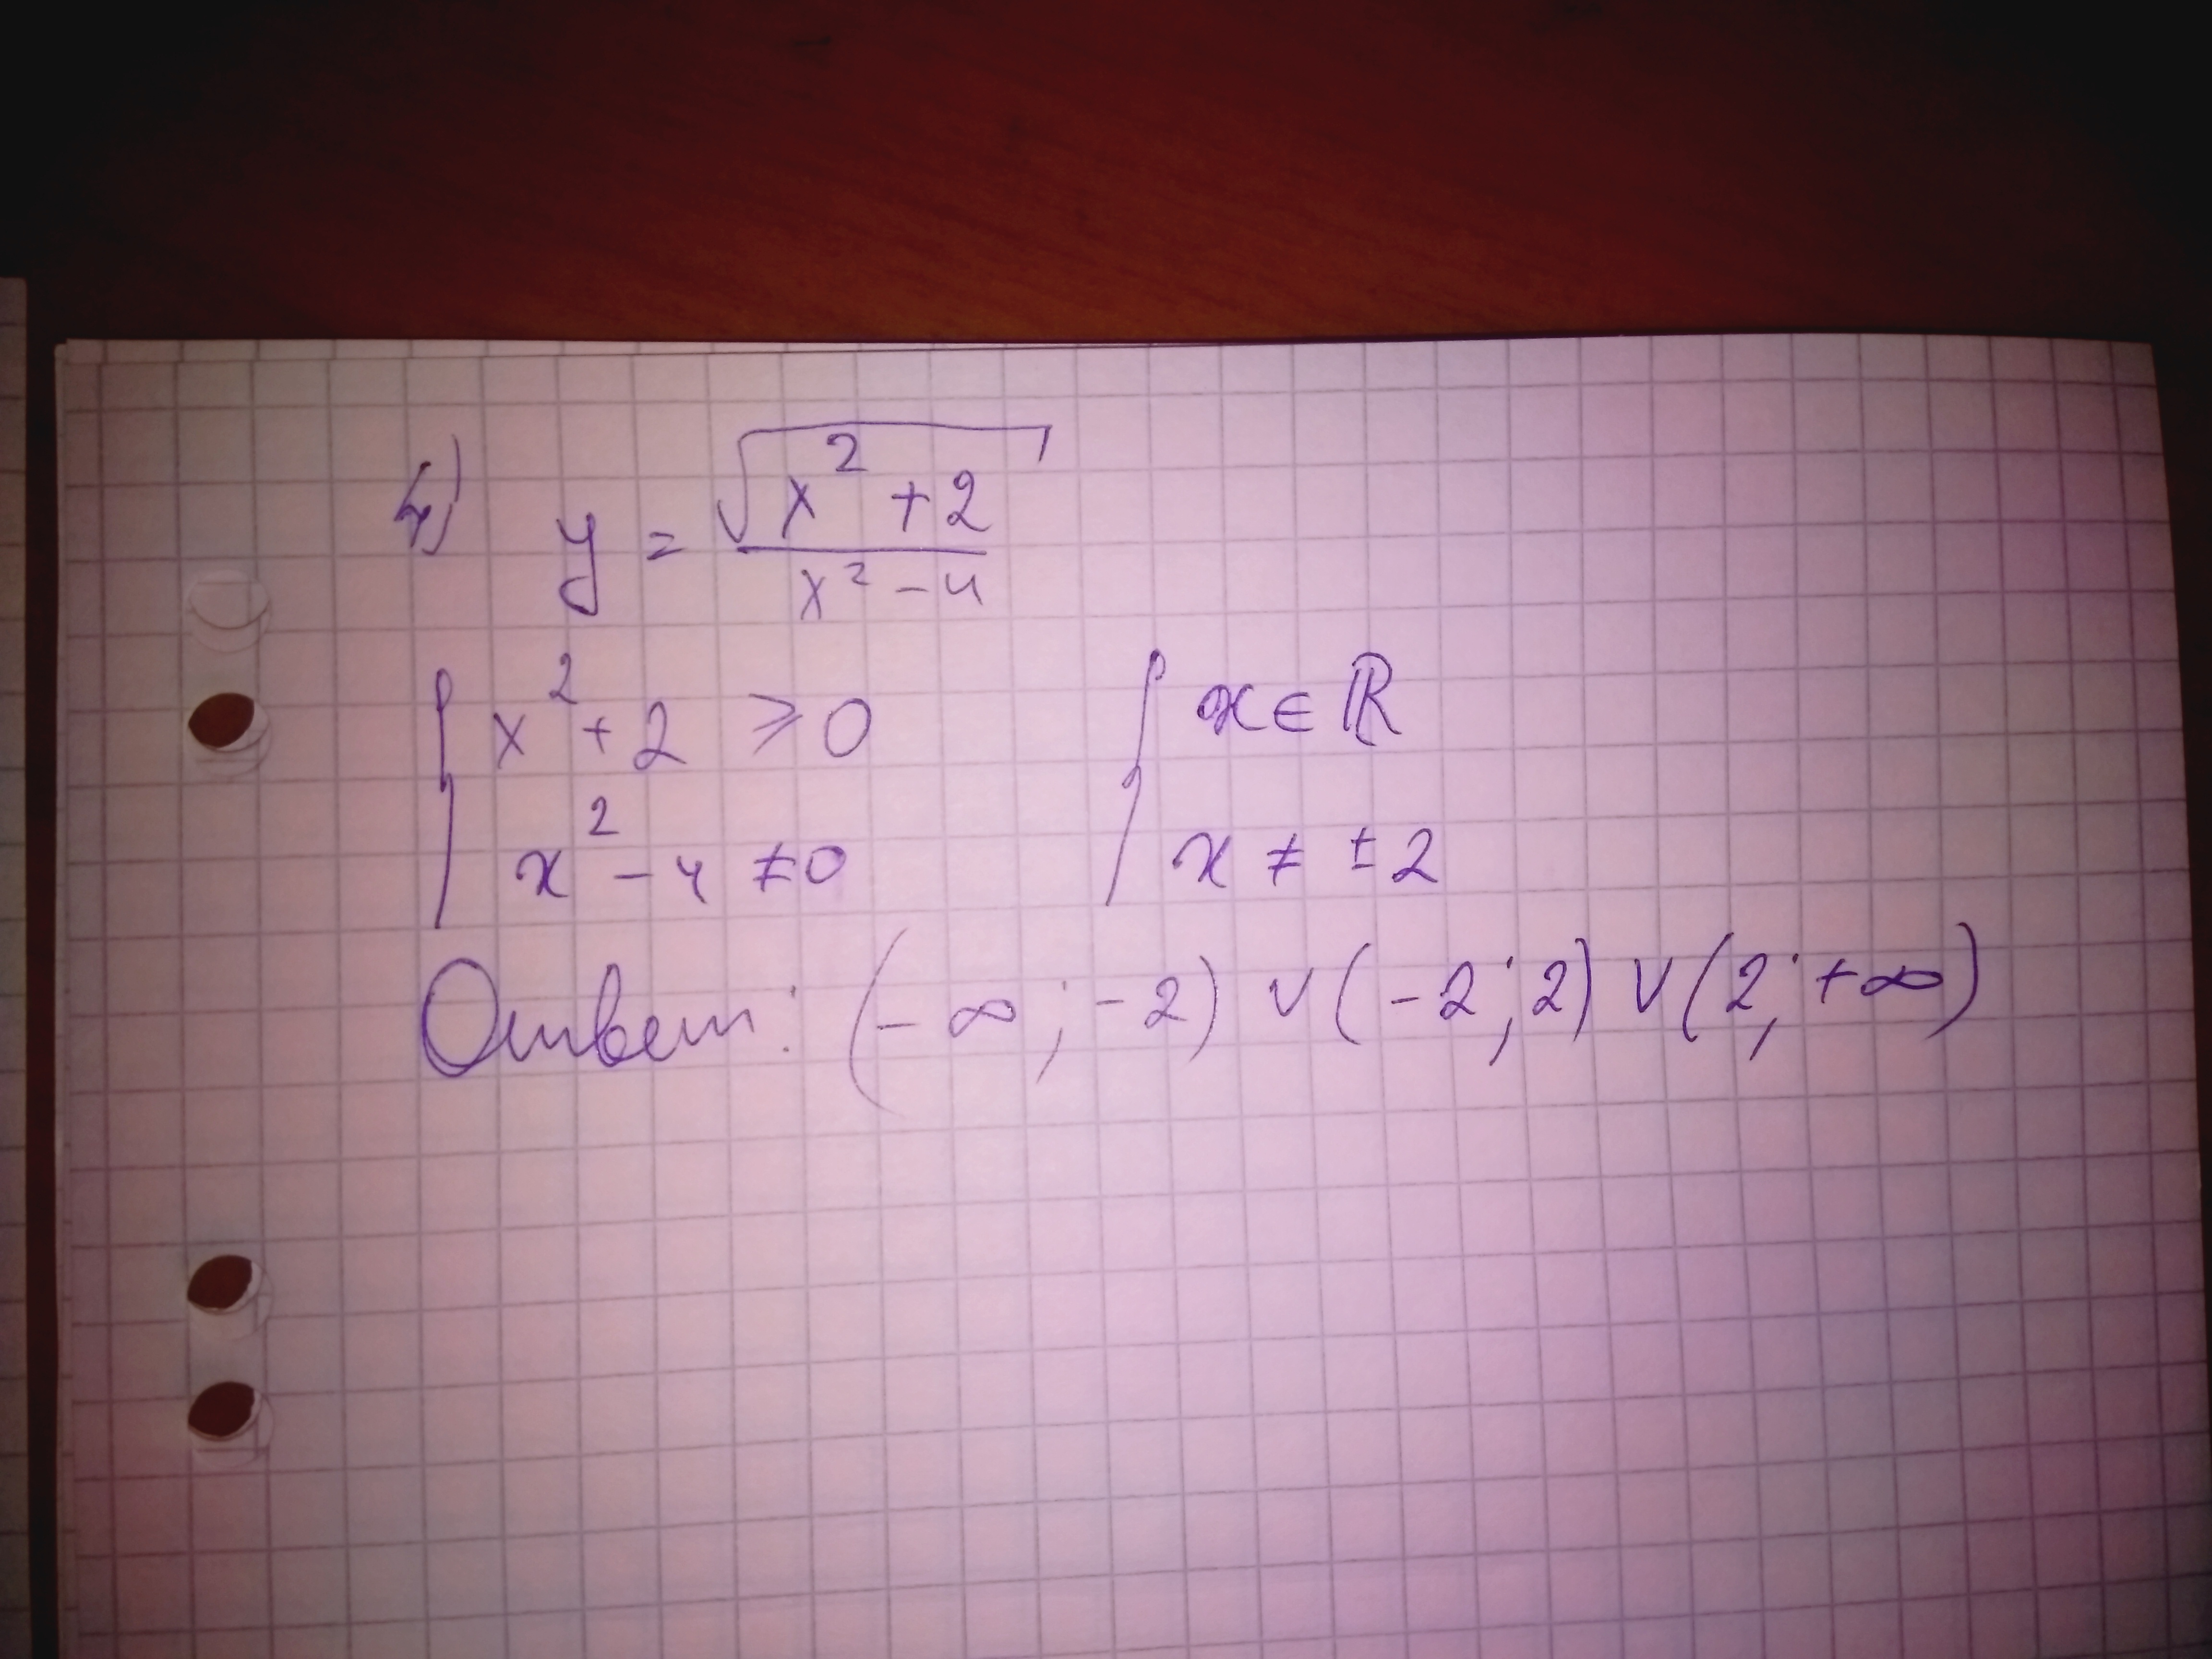 4) y = √(x² + 2) / (x² - 4)
{ x² + 2 ⩾ 0 { x ∈ ℝ
x² - 4 ≠ 0 x ≠ ± 2
Ответ: (- ∞ ; - 2) ∨ (- 2 ; 2) ∨ (2 ; + ∞)